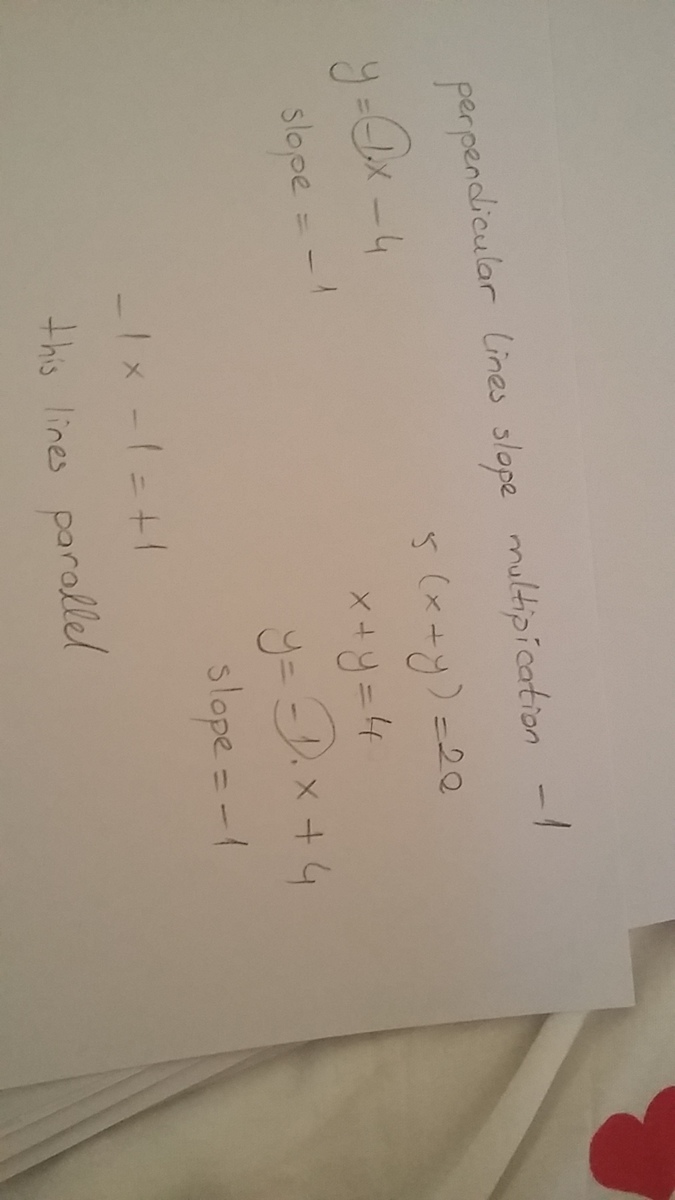 perpendicular lines slope multipication -1
y = -1.x - 4
slope = -1
5 (x + y) = 20
x + y = 4
y = -1. x + 4
slope = -1
-1 x -1 = +1
this lines parallel